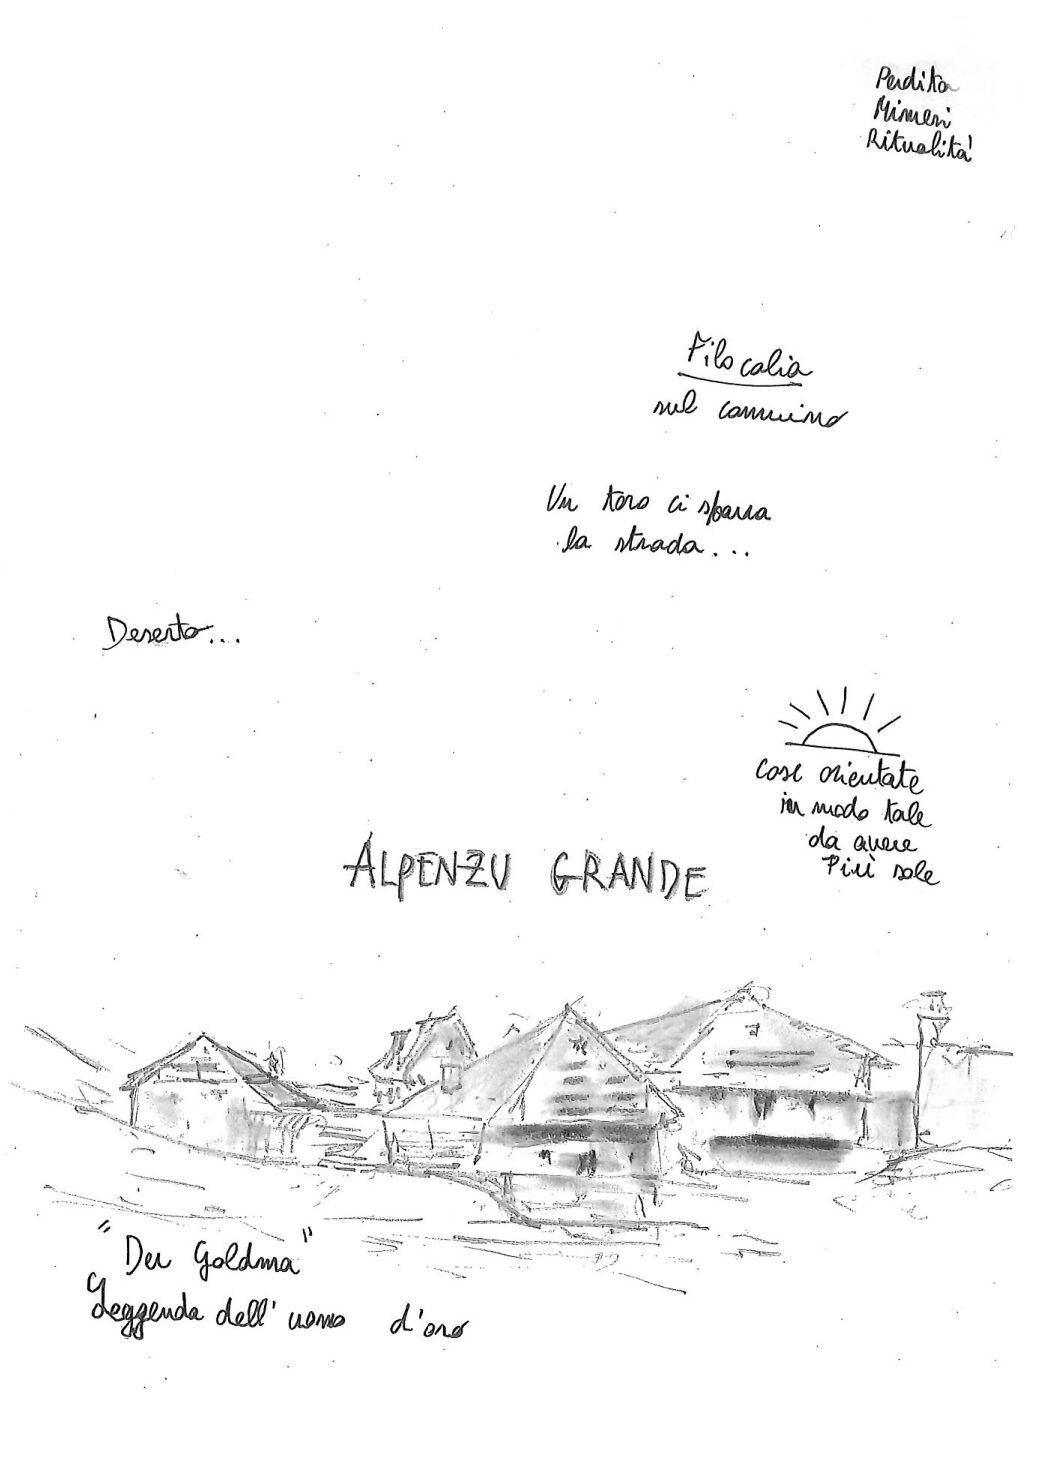 Perdita
Mimesi
Ritualità
Filocalia
sul cammino
Un toro ci sbarra
la strada...
Deserto...
Case orientate
in modo tale
da avere
più sole
ALPENZU GRANDE
"Der Goldma"
Leggenda dell'uomo d'oro